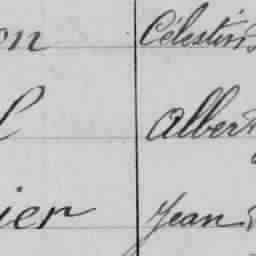 on Célestin
l Albert
ier Jean